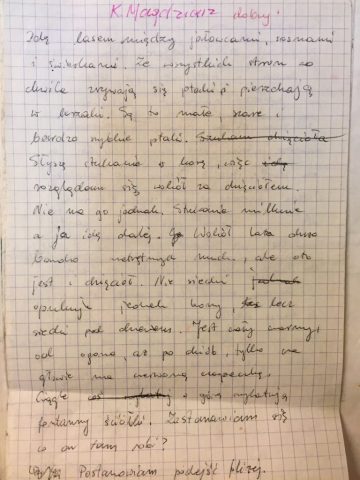 K. Magdziarz dobry.
Idę lasem między jałowcami, sosnami
i świerkami. Ze wszystkich stron co
chwila zrywają się ptaki i pierzchają
w krzaki. Są to małe, szare i
bardzo szybkie ptaki. Szukam dzięcioła
Słyszę stukanie w korę, więc idę
rozglądam się wokół za dzięciołem.
Nie ma go jednak. Stukanie milknie
a ja idę dalej. Wokół lata dużo
bardzo natrętnych much, ale oto
jest i dzięcioł. Nie siedzi jednak
opukuje jednak kory, lecz
siedzi pod drzewem. Jest cały czarny,
od ogona, aż po dziób, tylko na
głowie ma czerwoną czapeczkę.
Ciągle coś w górę wylatują
fontanny ściółki. Zastanawiam się
co on tam robi?
Postanawiam podejść bliżej.